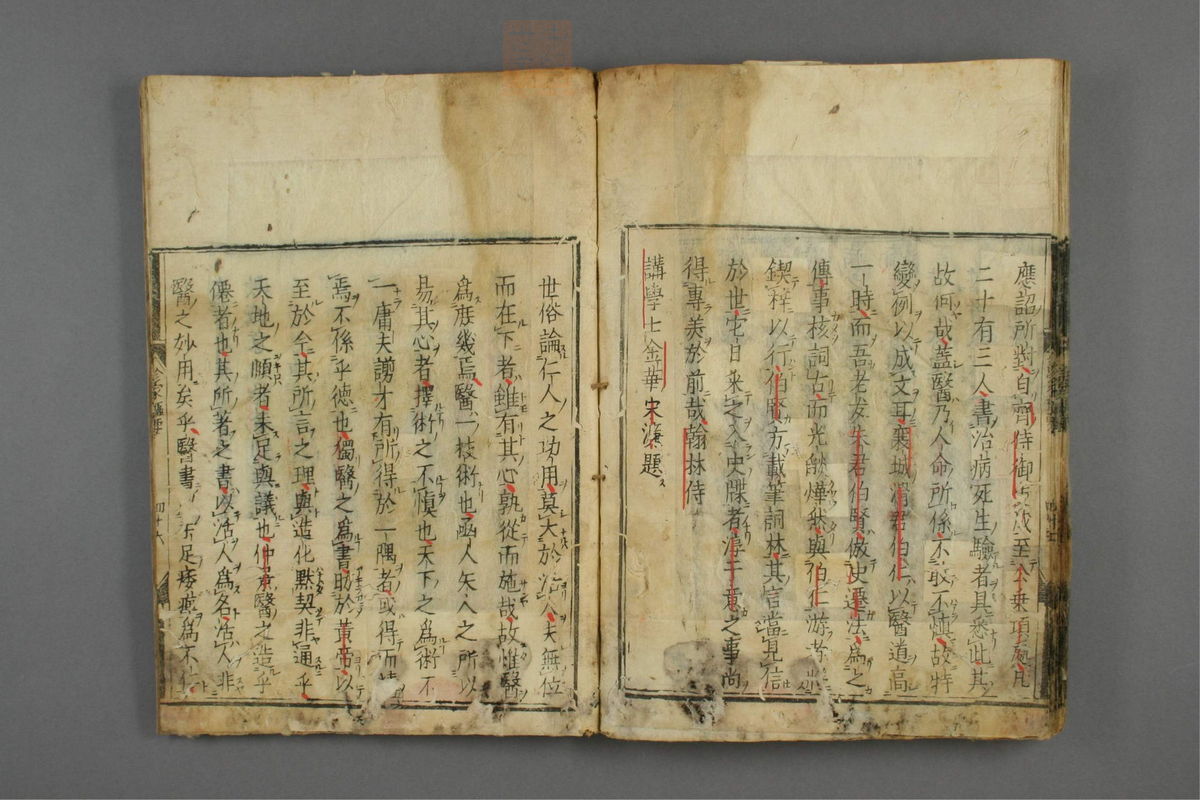 應詔所對自齊侍御至公乗項處凡
二十有三人書治病死生驗者具悉此其
故何哉蓋醫乃人命所係不敢不慎故特
變例以成文耳襄城滑君伯仁以醫道高
一時而吾老友朱君伯賢倣史遷法為之
傳事核詞古而光燄燁然與伯仁游者
鍥梓以行伯賢方載筆詞林其言當見信
於世它日采之入史牒者淳于意之事尚
得專美於前哉翰林侍
講學士金華宋濂題
世俗論仁人之功用莫大於治人夫無位
而在下者雖有其心孰從而施哉故惟醫
為庶幾焉醫一技術也函人矢人之所以
易其心者擇術之不慎也天下之為術不
一庸夫謭才有所得於一隅者或得而
焉不係乎德也獨醫之為書昉於黃帝以
至於今其所言之理與造化默契非通乎
天地之順者未足與議也仲景醫之造乎
僊者也其所著之書以活人為名活人非
醫之妙用矣乎醫書以手足痿痺為不仁